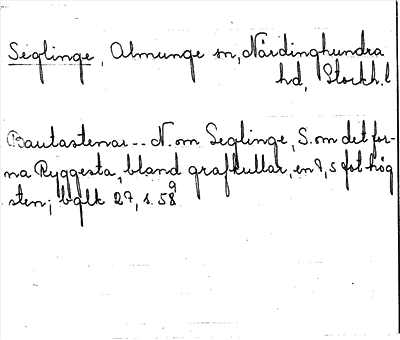 Seglinge, Almunge sn, Närdinghundra
hd, Stockh. l
Bautastenar -- N. om Seglinge, S. om det for-
na Ryggesta, bland grafkullar, en 7,5 fot hög
sten; bqlk 27, s. 58